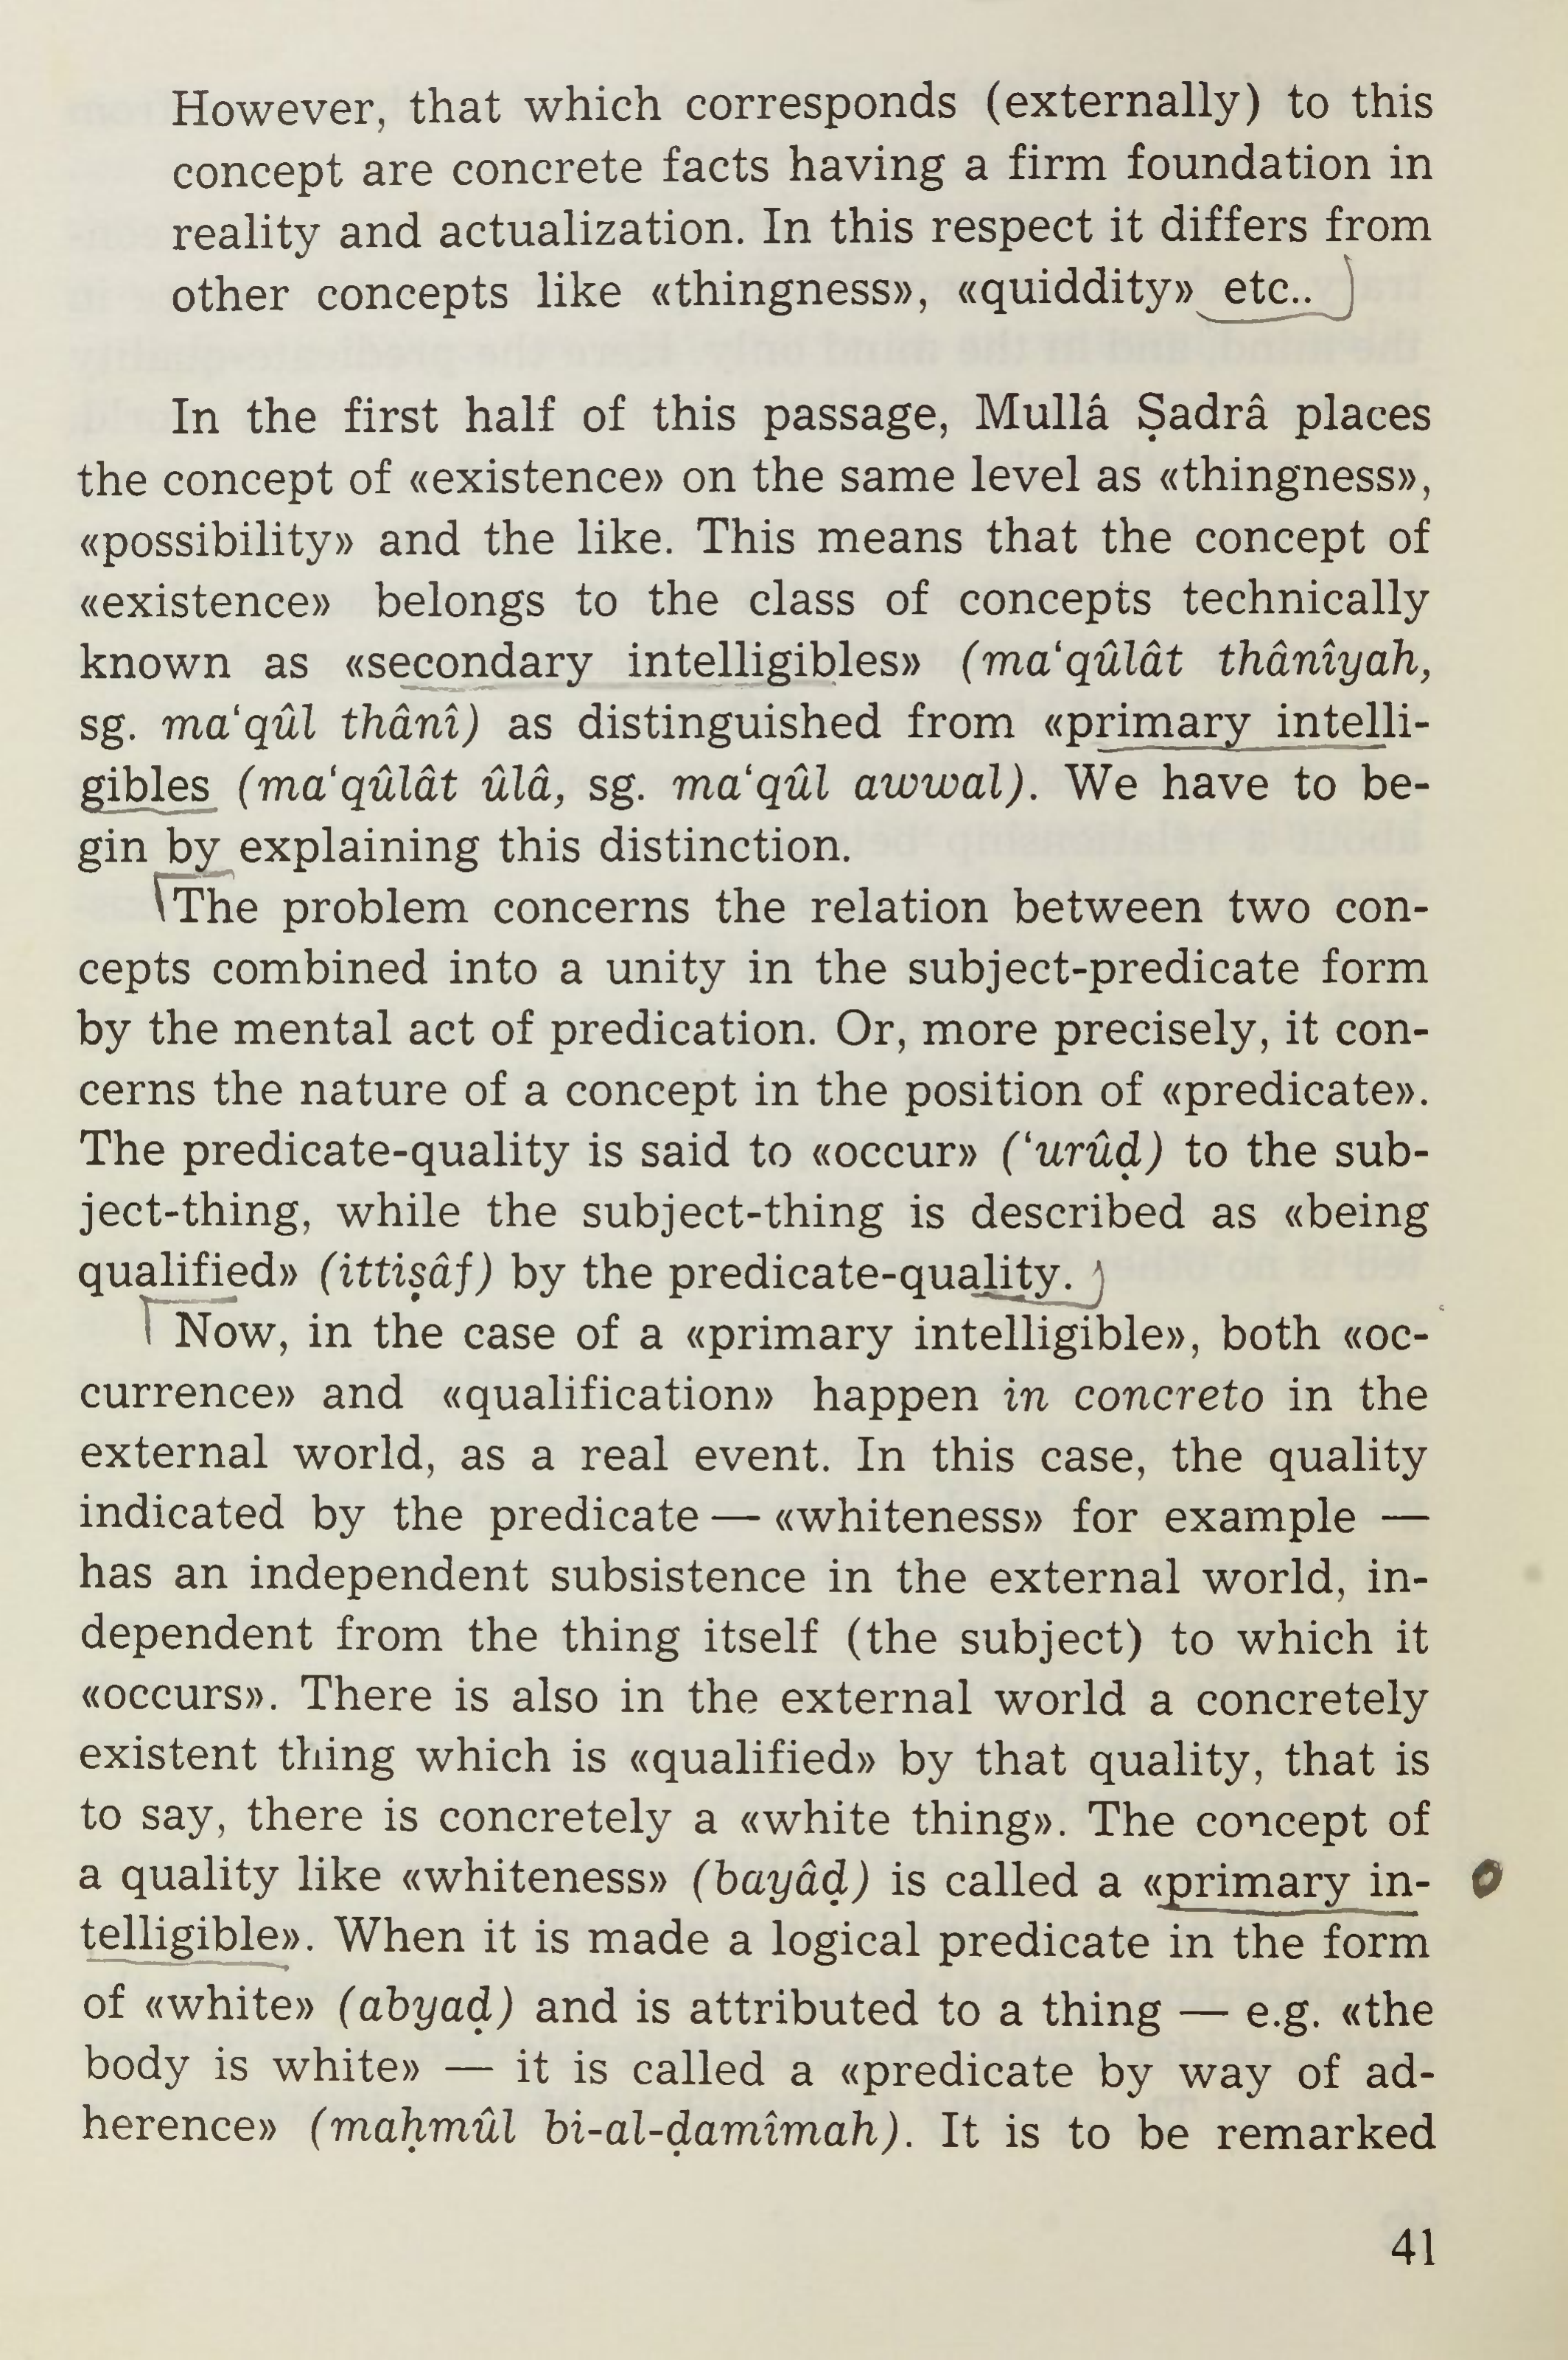 However, that which corresponds (externally) to this
concept are concrete facts having a firm foundation in
reality and actualization. In this respect it differs from
other concepts like «thingness», «quiddity» etc..
In the first half of this passage, Mullâ Ṣadrâ places
the concept of «existence» on the same level as «thingness»,
«possibility» and the like. This means that the concept of
«existence» belongs to the class of concepts technically
known as «secondary intelligibles» (ma‘qûlât thânîyah,
sg. ma‘qûl thânî) as distinguished from «primary intelli-
gibles (ma‘qûlât ûlâ, sg. ma‘qûl awwal). We have to be-
gin by explaining this distinction.
The problem concerns the relation between two con-
cepts combined into a unity in the subject-predicate form
by the mental act of predication. Or, more precisely, it con-
cerns the nature of a concept in the position of «predicate».
The predicate-quality is said to «occur» (‘urûḍ) to the sub-
ject-thing, while the subject-thing is described as «being
qualified» (ittiṣâf) by the predicate-quality.
Now, in the case of a «primary intelligible», both «oc-
currence» and «qualification» happen in concreto in the
external world, as a real event. In this case, the quality
indicated by the predicate — «whiteness» for example —
has an independent subsistence in the external world, in-
dependent from the thing itself (the subject) to which it
«occurs». There is also in the external world a concretely
existent thing which is «qualified» by that quality, that is
to say, there is concretely a «white thing». The concept of
a quality like «whiteness» (bayâḍ) is called a «primary in-
telligible». When it is made a logical predicate in the form
of «white» (abyaḍ) and is attributed to a thing — e.g. «the
body is white» — it is called a «predicate by way of ad-
herence» (maḥmûl bi-al-ḍamîmah). It is to be remarked
41